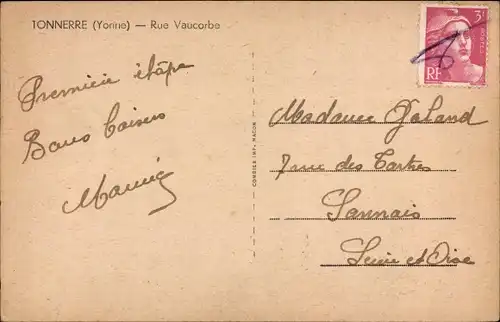 TONNERRE (Yonne) — Rue Vaucorbe
Première étape
Bons baisers
3F
RF
COMBIER IMP. MACON
Madame Galand
7 rue des Tartres
Sannois
Seine et Oise